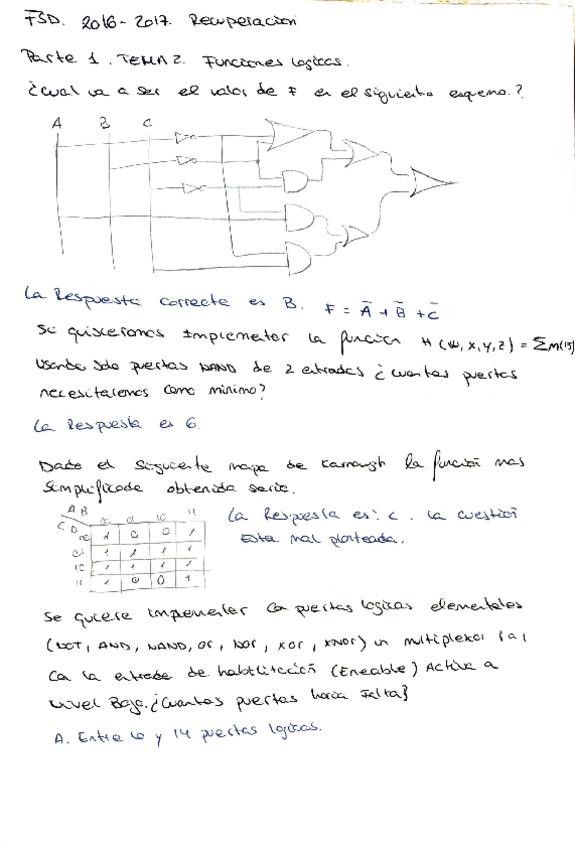 FSD. 2016-2017. Recuperación
Parte 1. TEMA 2. Funciones logicas.
¿Cual va a ser el valor de F en el siguiente esquema.?
A B C
La Respuesta correcta es B. F = Ā + B̄ + C̄
Si quisieramos Implementar la función H (W, X, Y, Z) = ΣM(15)
Usando solo puertas NAND de 2 entradas ¿cuantas puertas
necesitaremos como minimo?
La Respuesta es 6.
Dado el siguiente mapa de Karnaugh la función mas
simplificada obtenida seria.
AB
CD 00 01 10 11
00 1 0 0 1
01 1 1 1 1
10 1 1 1 1
11 1 0 0 1
La Respuesta es: C. La cuestión
Esta mal planteada.
Se quiere implementar con puertas logicas elementales
(NOT, AND, NAND, OR, NOR, XOR, XNOR) un multiplexor
Con la entrada de habilitación (Eneable) Activa a
Nivel Bajo. ¿Cuantas puertas haria Falta?
A. Entre 10 y 14 puertas logicas.